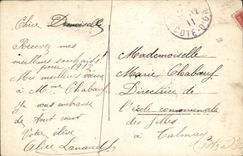 Chère Demoiselle
Recevez mes
meilleurs souhaits
pour 1912
Mes meilleurs vœux
à Mme Chabeuf
Je vous embrasse
de tout cœur
Votre élève
Alice
Mademoiselle
Marie Chabeuf
Directrice de
l'école communale
des filles
à Talmay
CÔTE-D'OR